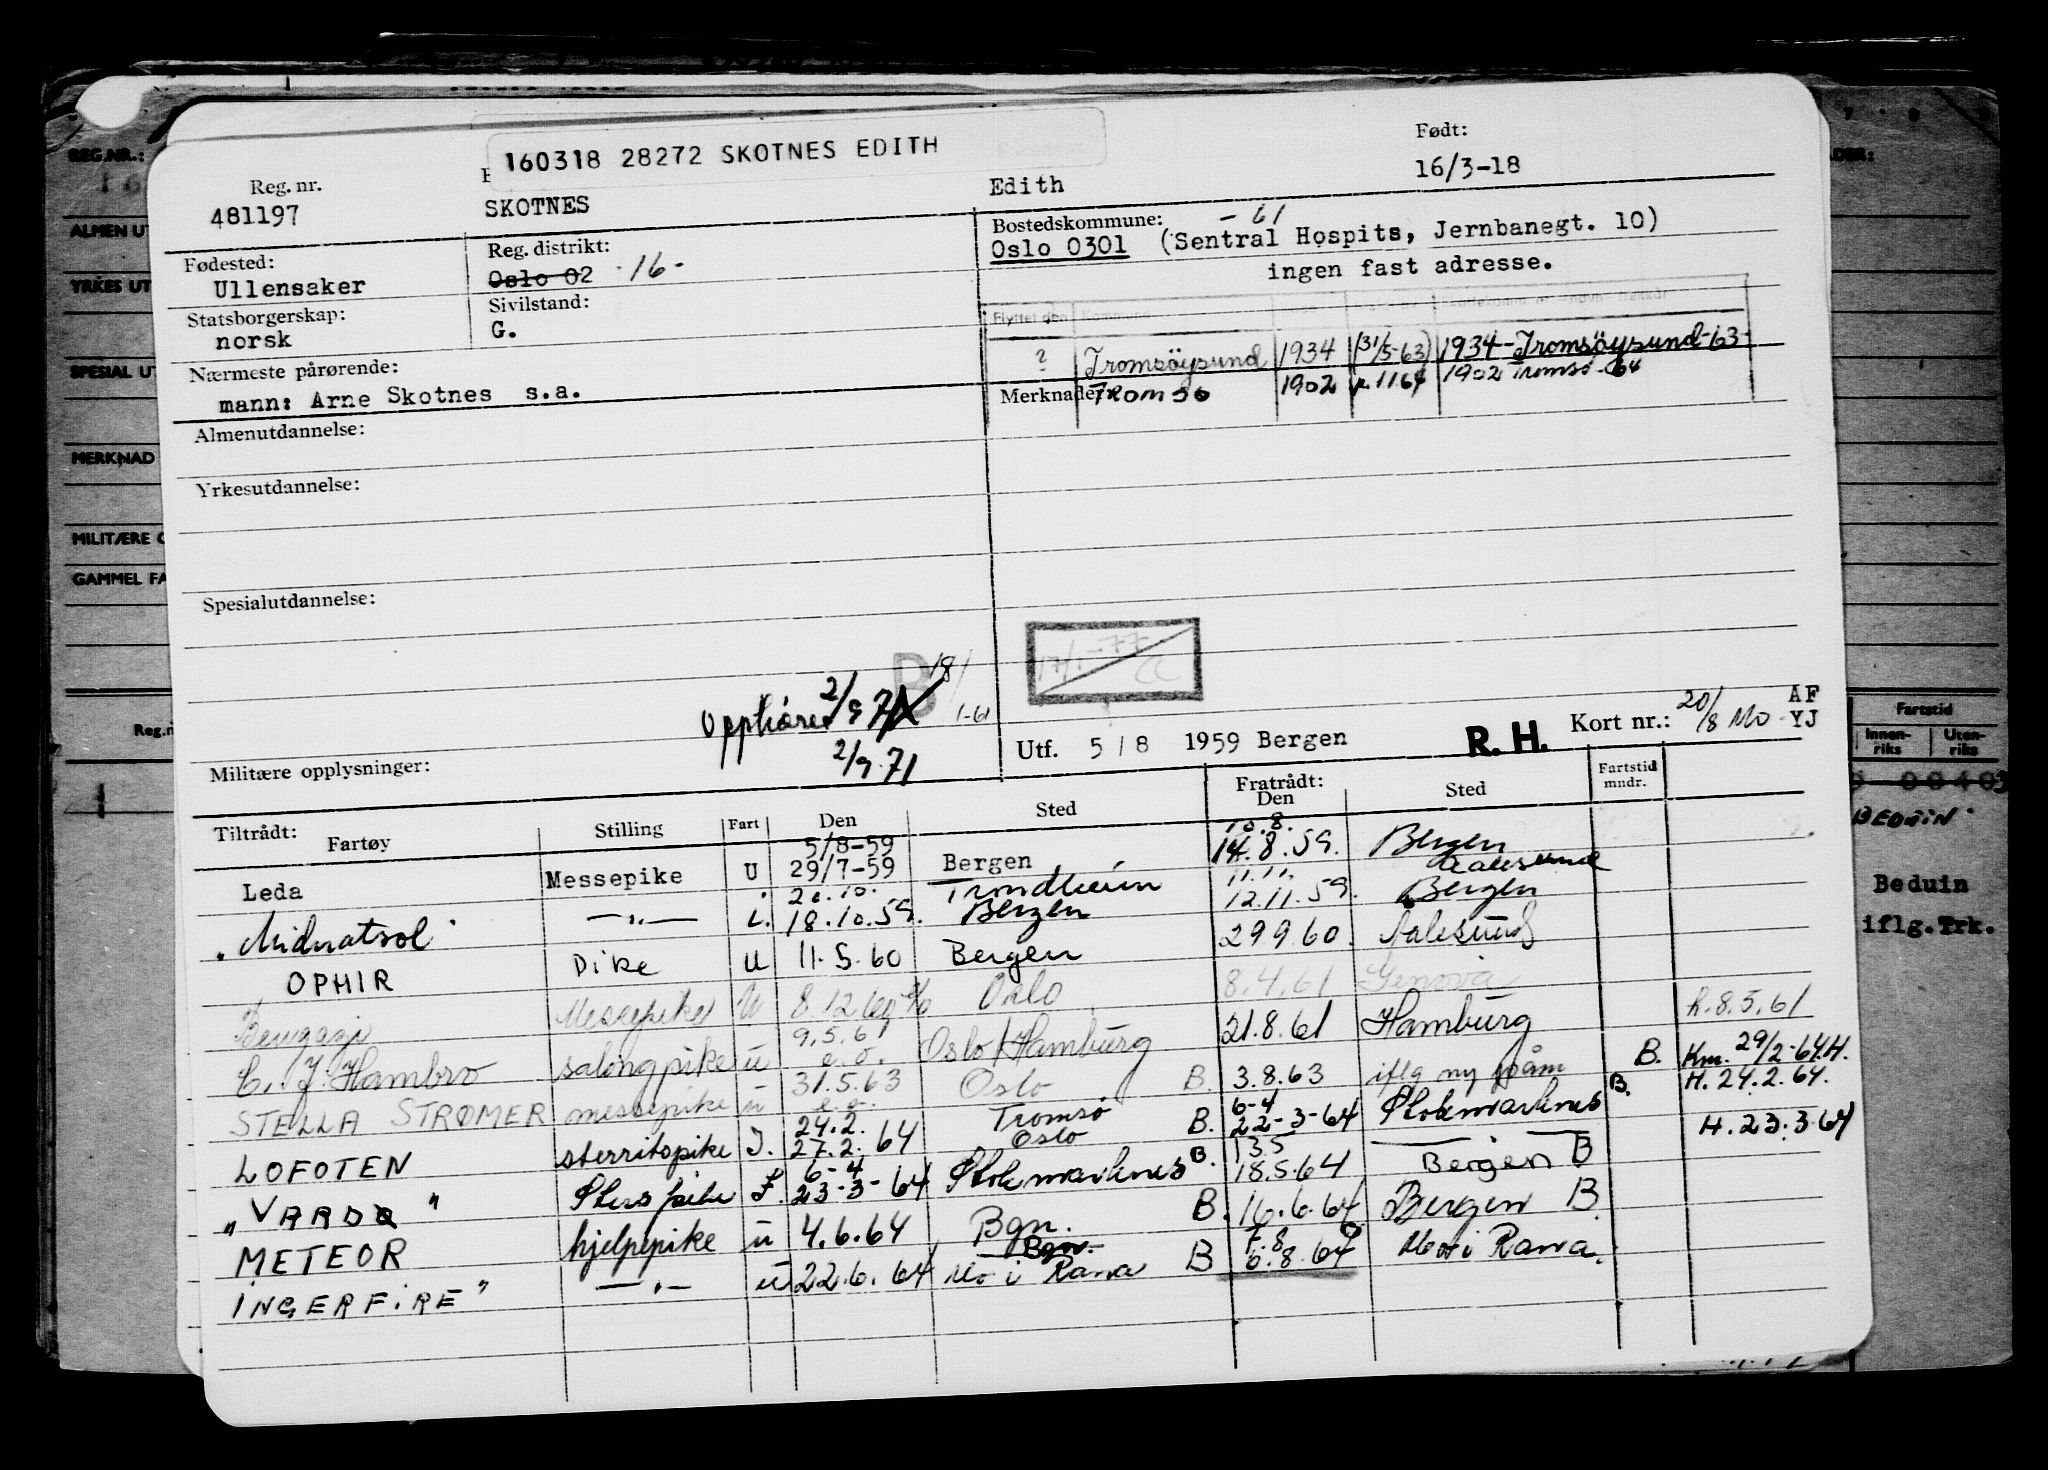 160318 28272 SKOTNES EDITH
Reg. nr.
481197
SKOTNES
Edith
Født:
16/3-18
Fødested:
Ullensaker
Reg. distrikt:
Oslo 02 -16-
Bostedskommune: -61
Oslo 0301 (Sentral Hospits, Jernbanegt. 10)
ingen fast adresse.
Statsborgerskap:
norsk
Sivilstand:
G.
Flyttet den Kommune
? Tromsöysund 1934 (31/5-63) 1934-Tromsöysund-63-
Nærmeste pårørende:
mann: Arne Skotnes s.a.
Merknader:
Tromsö 1902 1902 Tromsö-64
Almenutdannelse:
Yrkesutdannelse:
Spesialutdannelse:
17/1-77
B 18/1-61
Opphører 2/9 71
2/9.71
Militære opplysninger:
Utf. 5/8 1959 Bergen
R. H.
Kort nr.: 20/8 Mo
AF
YJ
Tiltrådt:
Fartøy Stilling Fart Den Sted
Fratrådt:
Den Sted
Fartstid
mndr.
5/8-59 10.8.
Leda Messepike U 29/7-59 Bergen 14.8.59. Bergen
20.10. Trondheim 11.11. Aalesund
"Midnatsol" —„— 18.10.59. Bergen 12.11.59. Bergen
OPHIR Dike U 11.5.60 Bergen 29.9.60. Aalesund
Messepike U 8.12.60 Oslo 8.4.61 Genova
9.5.61 h.8.5.61
C. J. Hambro salongpike u e.o. Oslo/Hamburg 21.8.61 Hamburg
31.5.63
STELLA STRØMER messepike u e.o. Oslo B. 3.8.63 iflg ny påm B. Km. 29/2-64.H.
24.2. Tromsø 6-4 B. H. 24.2.64.
LOFOTEN sterritspike I. 27.2.64 Oslo B. 22-3-64 Stokmarknes
6-4 B. 13.5 H. 23.3.64
"VARDØ" I. 23-3-64 Stokmarknes 18.5.64 Bergen B
METEOR hjelpepike u 4.6.64 Bgn. B. 16.6.64 Bergen B.
Bgn. 7.8
INGERFIRE" —„— u 22.6.64 Mo i Rana B 6.8.64 Mo i Rana.
REG.NR.:
ALMEN UT
YRKES UT
SPESIAL UT
MERKNAD
MILITÆRE
GAMMEL FA
Reg.n
Fartstid
Innen-
riks
Uten-
riks
BEDUIN
Beduin
iflg.Trk.